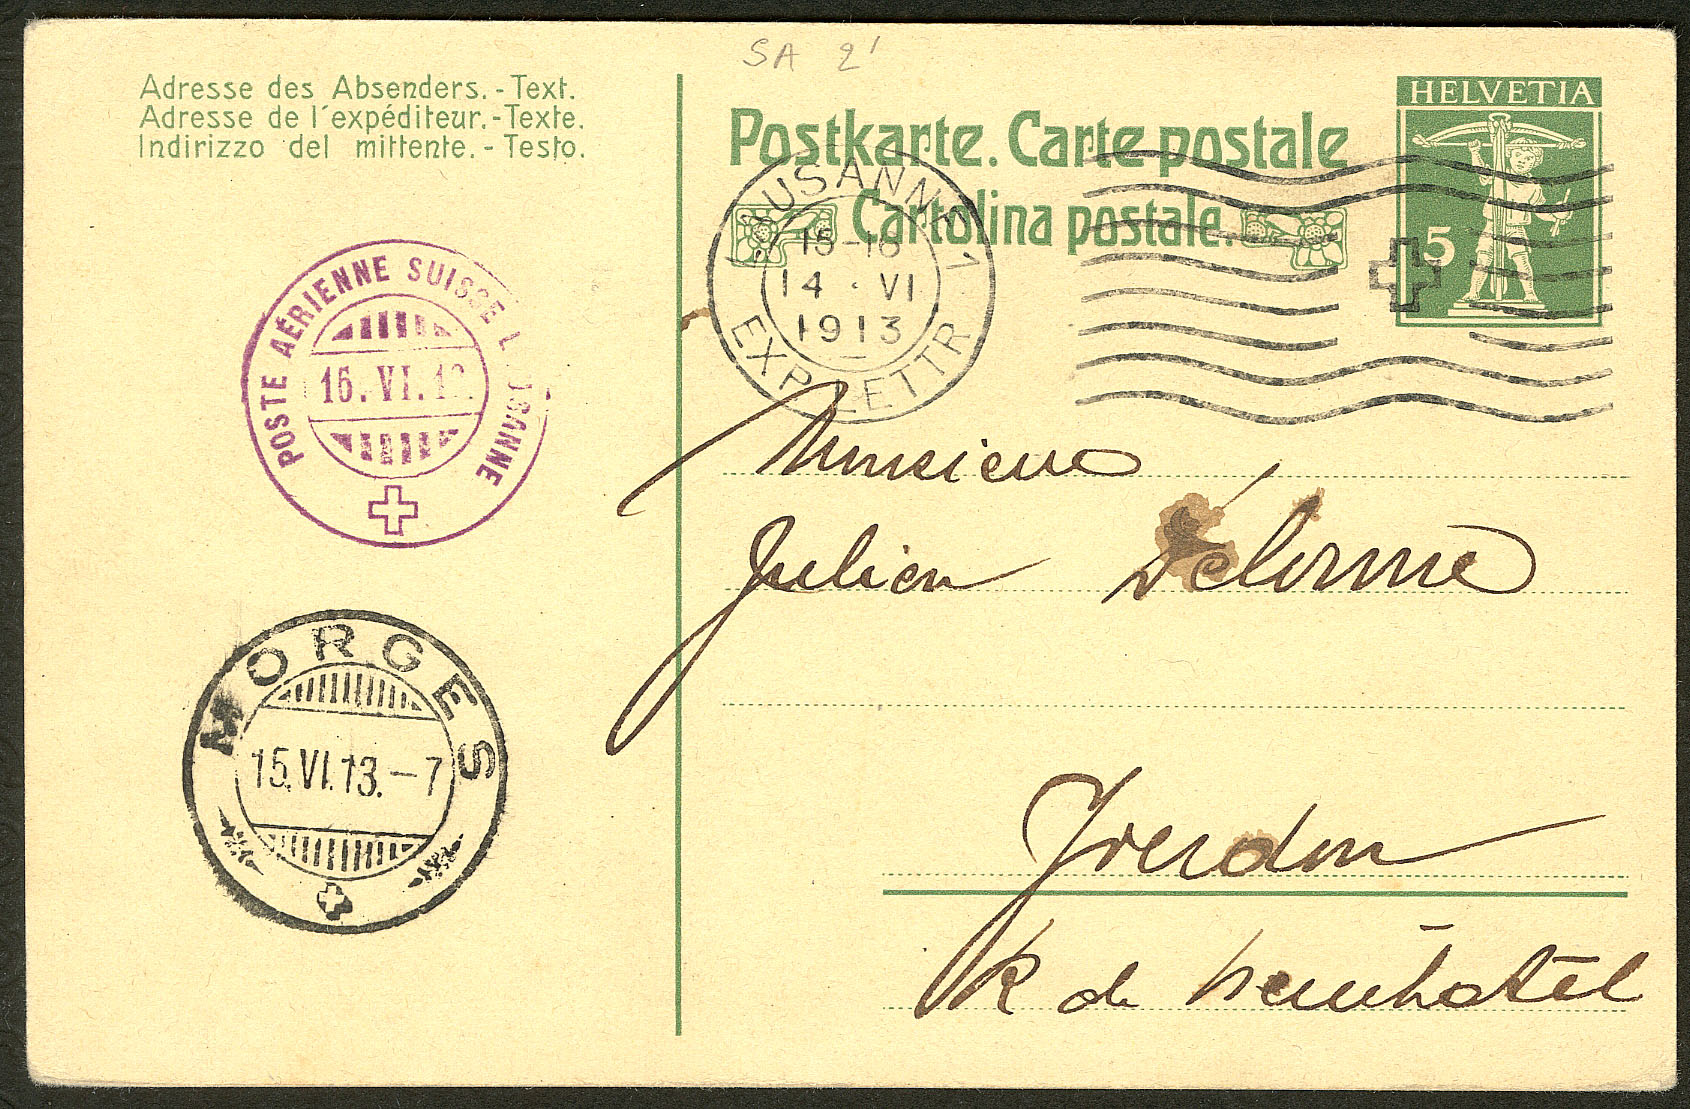 SA 2'
Adresse des Absenders. - Text.
Adresse de l'expéditeur. - Texte.
Indirizzo del mittente. - Testo.
Postkarte. Carte postale
Cartolina postale.
HELVETIA
5
LAUSANNE 1
15-16
14 · VI
1913
EXP. LETTR.
POSTE AÉRIENNE SUISSE LAUSANNE
16. VI. 13.
MORGES
15. VI. 13. – 7
Monsieur
Julien Delorme
Yverdon
R de Neuchatel